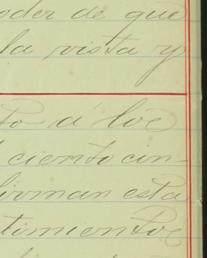 poder de que
la vista y
to a los
ciento cin-
firman esta
timientos